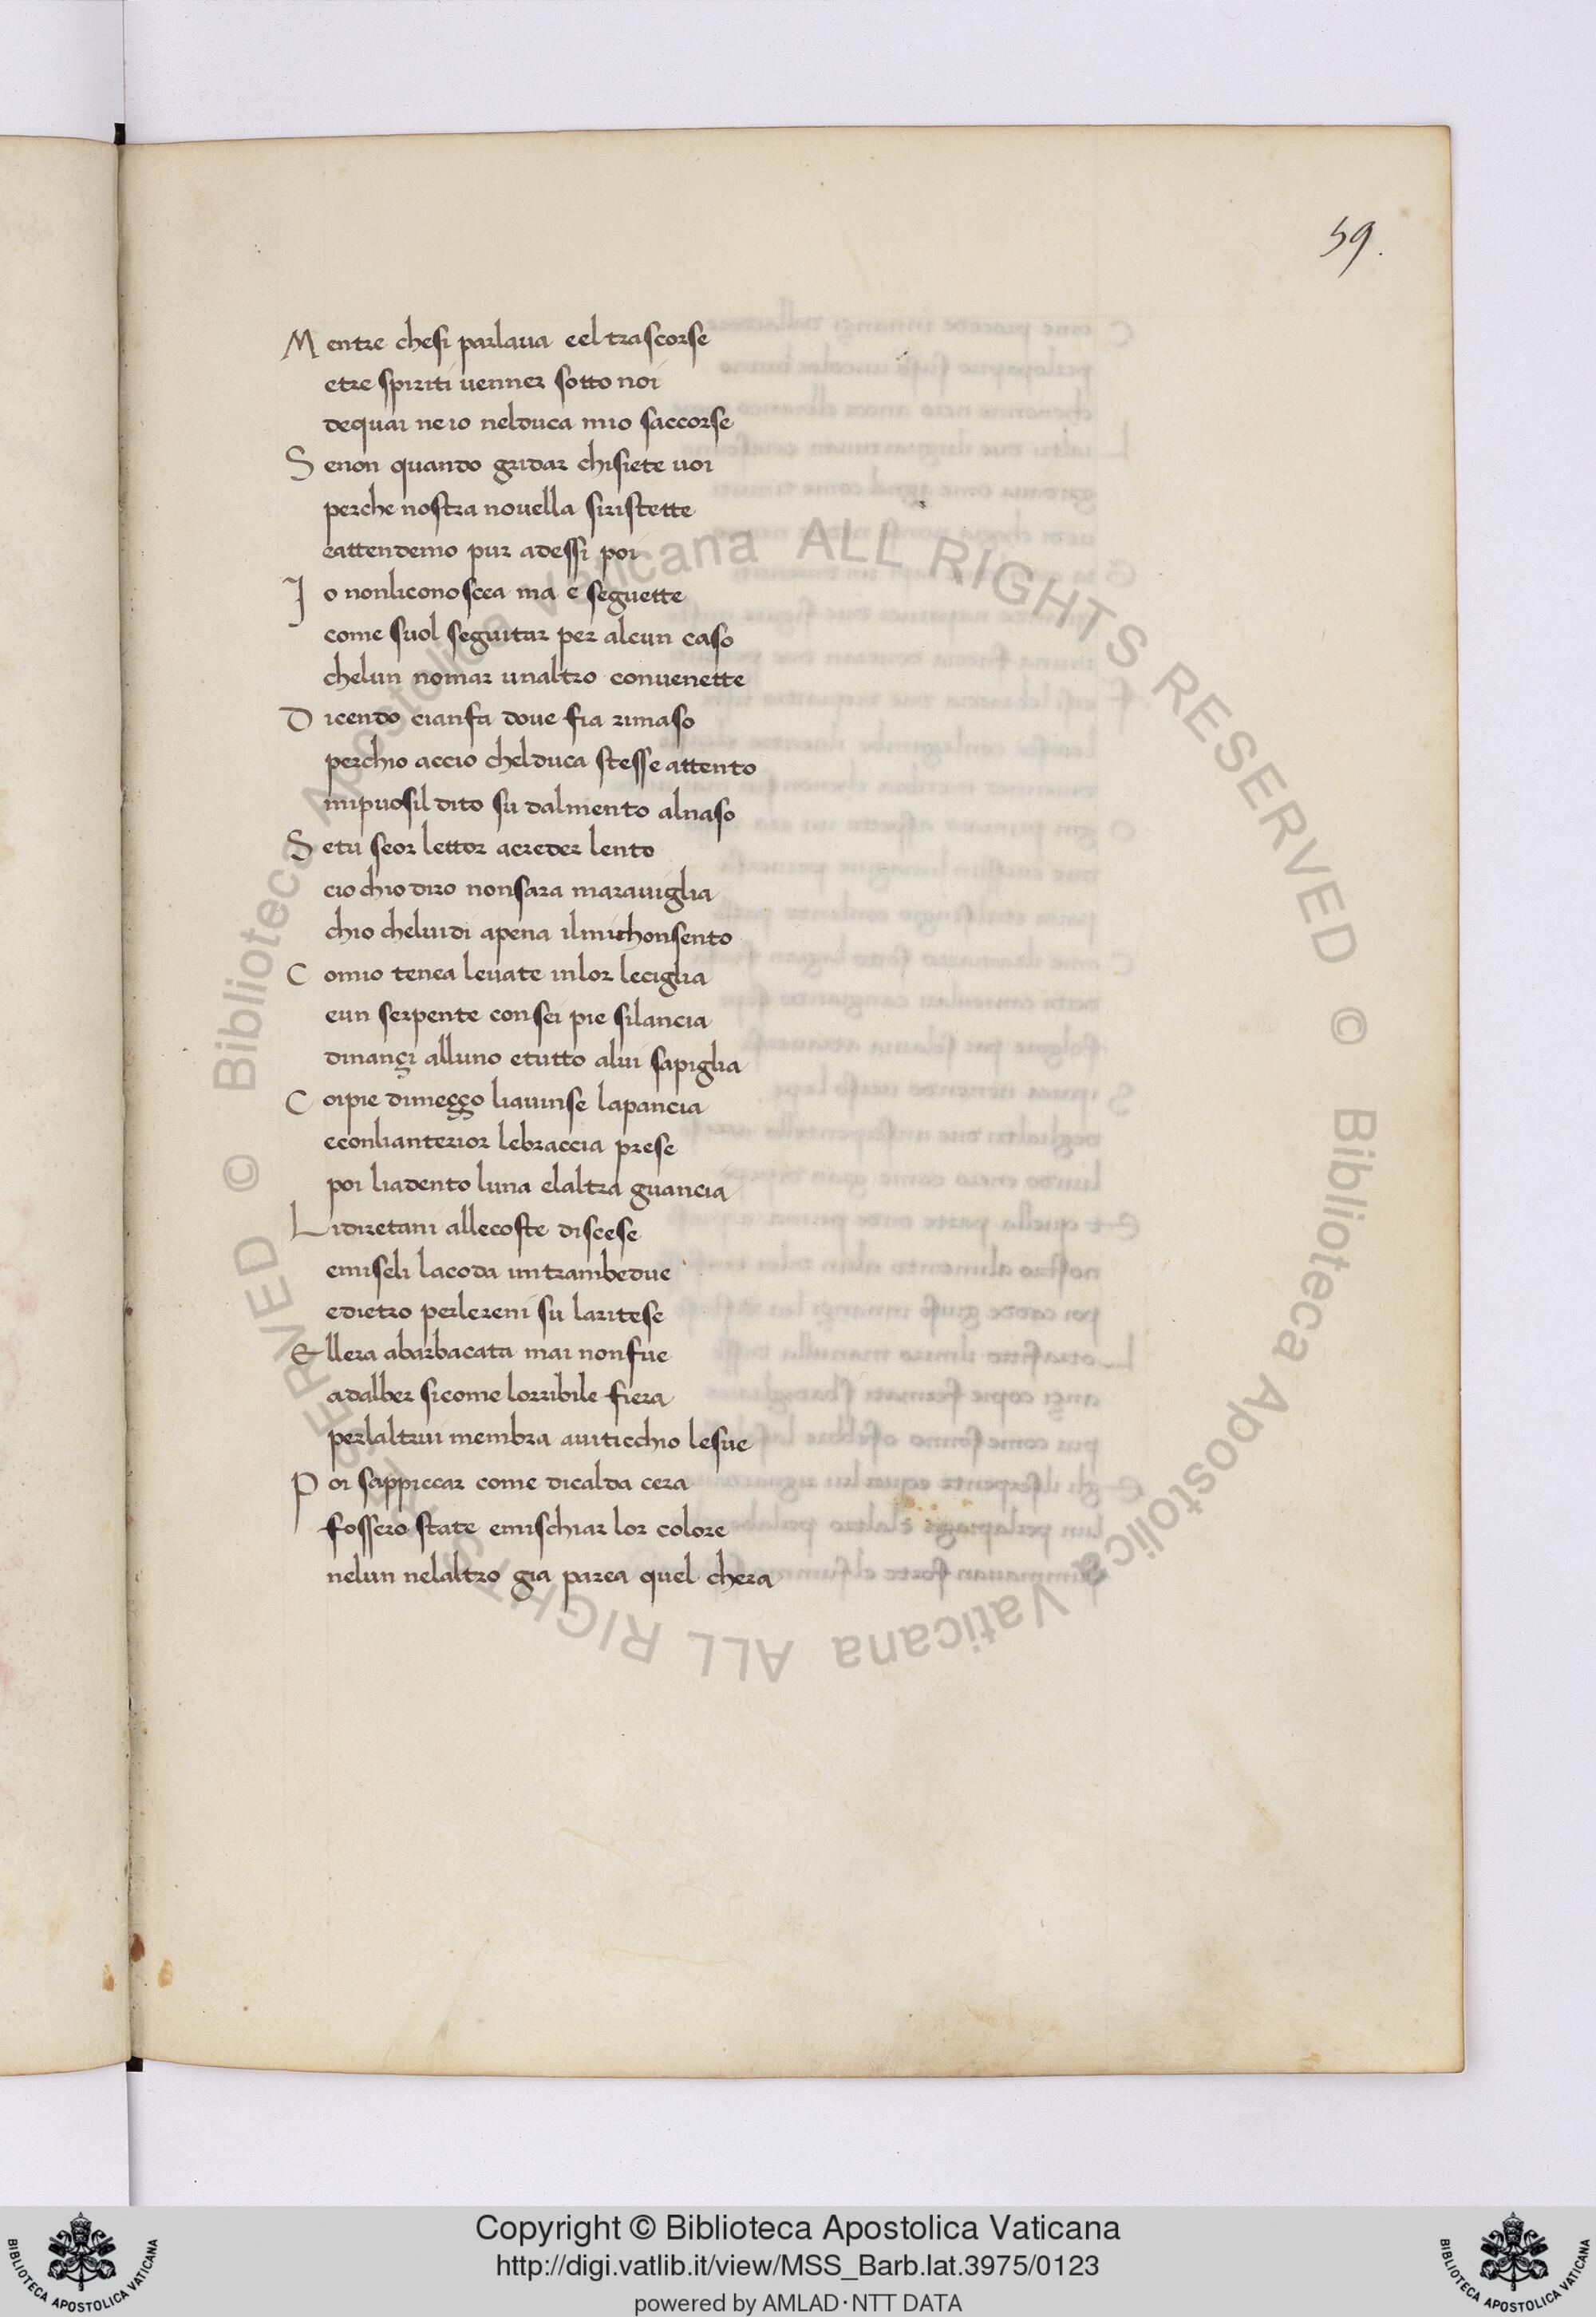 59.
M entre chesi parlaua eel trascorse
etre spiriti uenner sotto noi
dequai ne io nelduca mio saccorse
S enon quando gridar chisiete uoi
perche nostra nouella siristette
eattendemo pur adessi poi
I o nonliconoscea ma e seguette
come suol seguitar per alcun caso
chelun nomar unaltro conuenette
D icendo cianfa doue fia rimaso
perchio accio chelduca stesse attento
mipuosil dito su dalmento alnaso
S etu seor lettor acreder lento
cio chio diro nonsara marauiglia
chio cheluidi apena ilmichonsento
C omio tenea leuate inlor leciglia
eun serpente con sei pie silancia
dinançi alluno etutto alui sapiglia
C oipie dimeçço liauinse lapancia
econlianterior lebraccia prese
poi liadento luna elaltra guancia
L idiretani allecoste discese
emiseli lacoda intrambedue
edietro perlereni su laritese
E llera abarbacata mai nonfue
adalber sicome lorribile fiera
perlaltrui membra auiticchio lesue
P oi sappiccar come dicalda cera
fossero state emischiar lor colore
nelun nelaltro gia parea quel chera
© Biblioteca Apostolica Vaticana ALL RIGHTS RESERVED © Biblioteca Apostolica Vaticana ALL RIGHTS RESERVED
Copyright © Biblioteca Apostolica Vaticana
http://digi.vatlib.it/view/MSS_Barb.lat.3975/0123
powered by AMLAD·NTT DATA
BIBLIOTECA APOSTOLICA VATICANA
BIBLIOTECA APOSTOLICA VATICANA